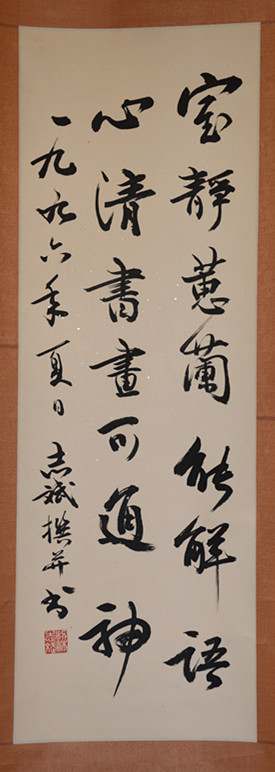 室靜蕙蘭能解語
心清書畫可通神
一九九六年夏日 志斌撰并書